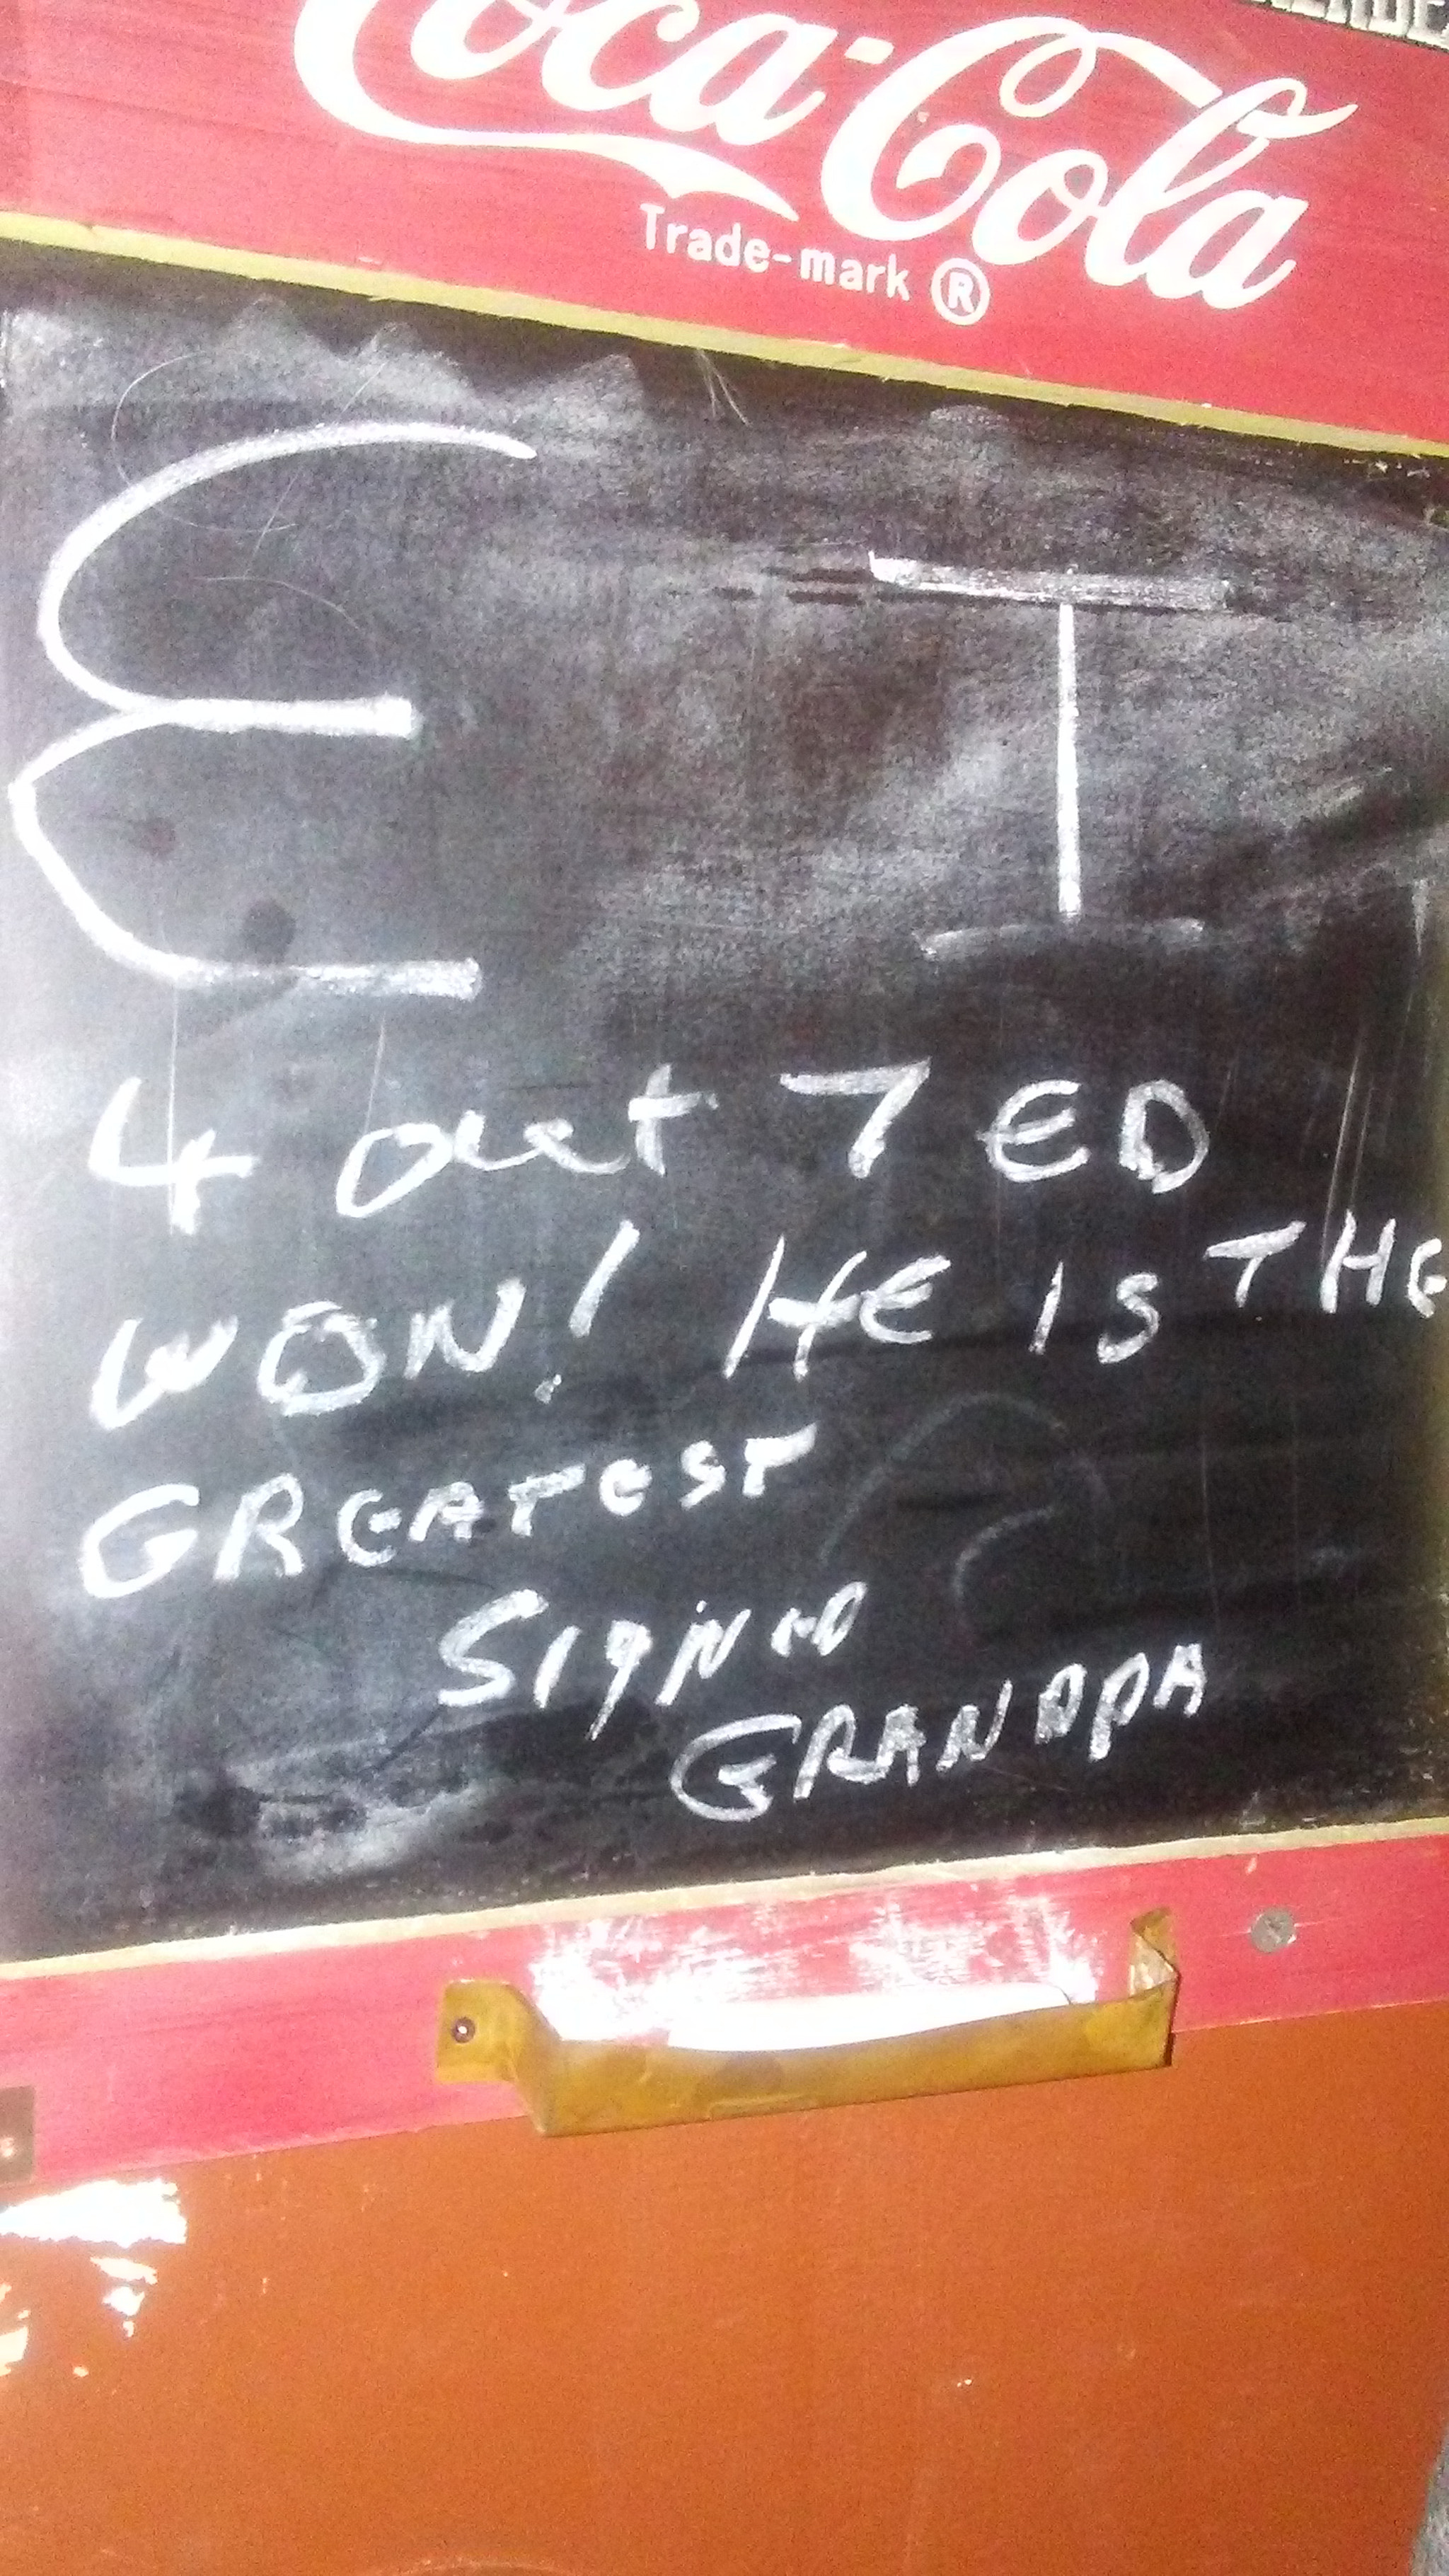 Coca-Cola
Trade-mark ®
E I
4 out 7 ED
WON! HE IS THE
GREATEST
SIgNED
GRANDPA